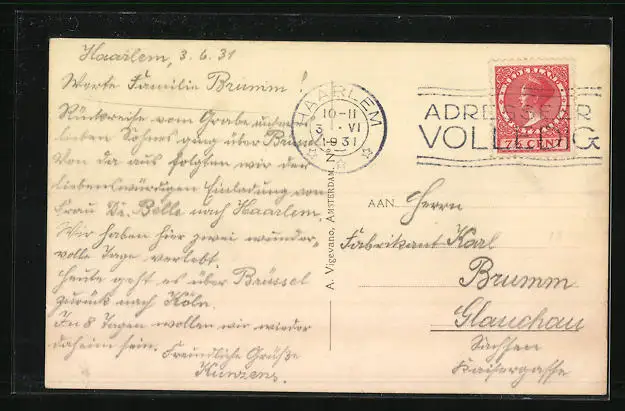 Haarlem, 3.6.31
Werte Familie Brumm!
Rückreise vom Grabe unseres
lieben Sohnes ging über Brüssel
Von da aus folgten wir der
liebenswürdigen Einladung von
Frau Dr. Bölle nach Haarlem.
Wir haben hier zwei wunder-
volle Tage verlebt
heute geht es über Brüssel
zurück nach Köln.
In 8 Tagen wollen wir wieder
daheim sein. Freundliche Grüße
Kunzens.
A. Vigevano, Amsterdam. N
HAARLEM
10-11
3 VI
1931
NEDERLAND
7½ CENT
ADRESSEER
VOLLEDIG
AAN
Herrn
Fabrikant Karl
Brumm
Glauchau
Sachsen
Kaisergasse